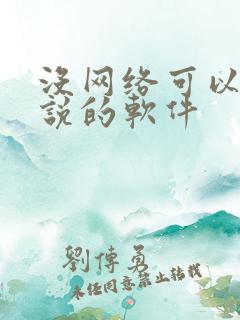 没网络可以
説的軟件
劉傳勇
未经同意禁止转载